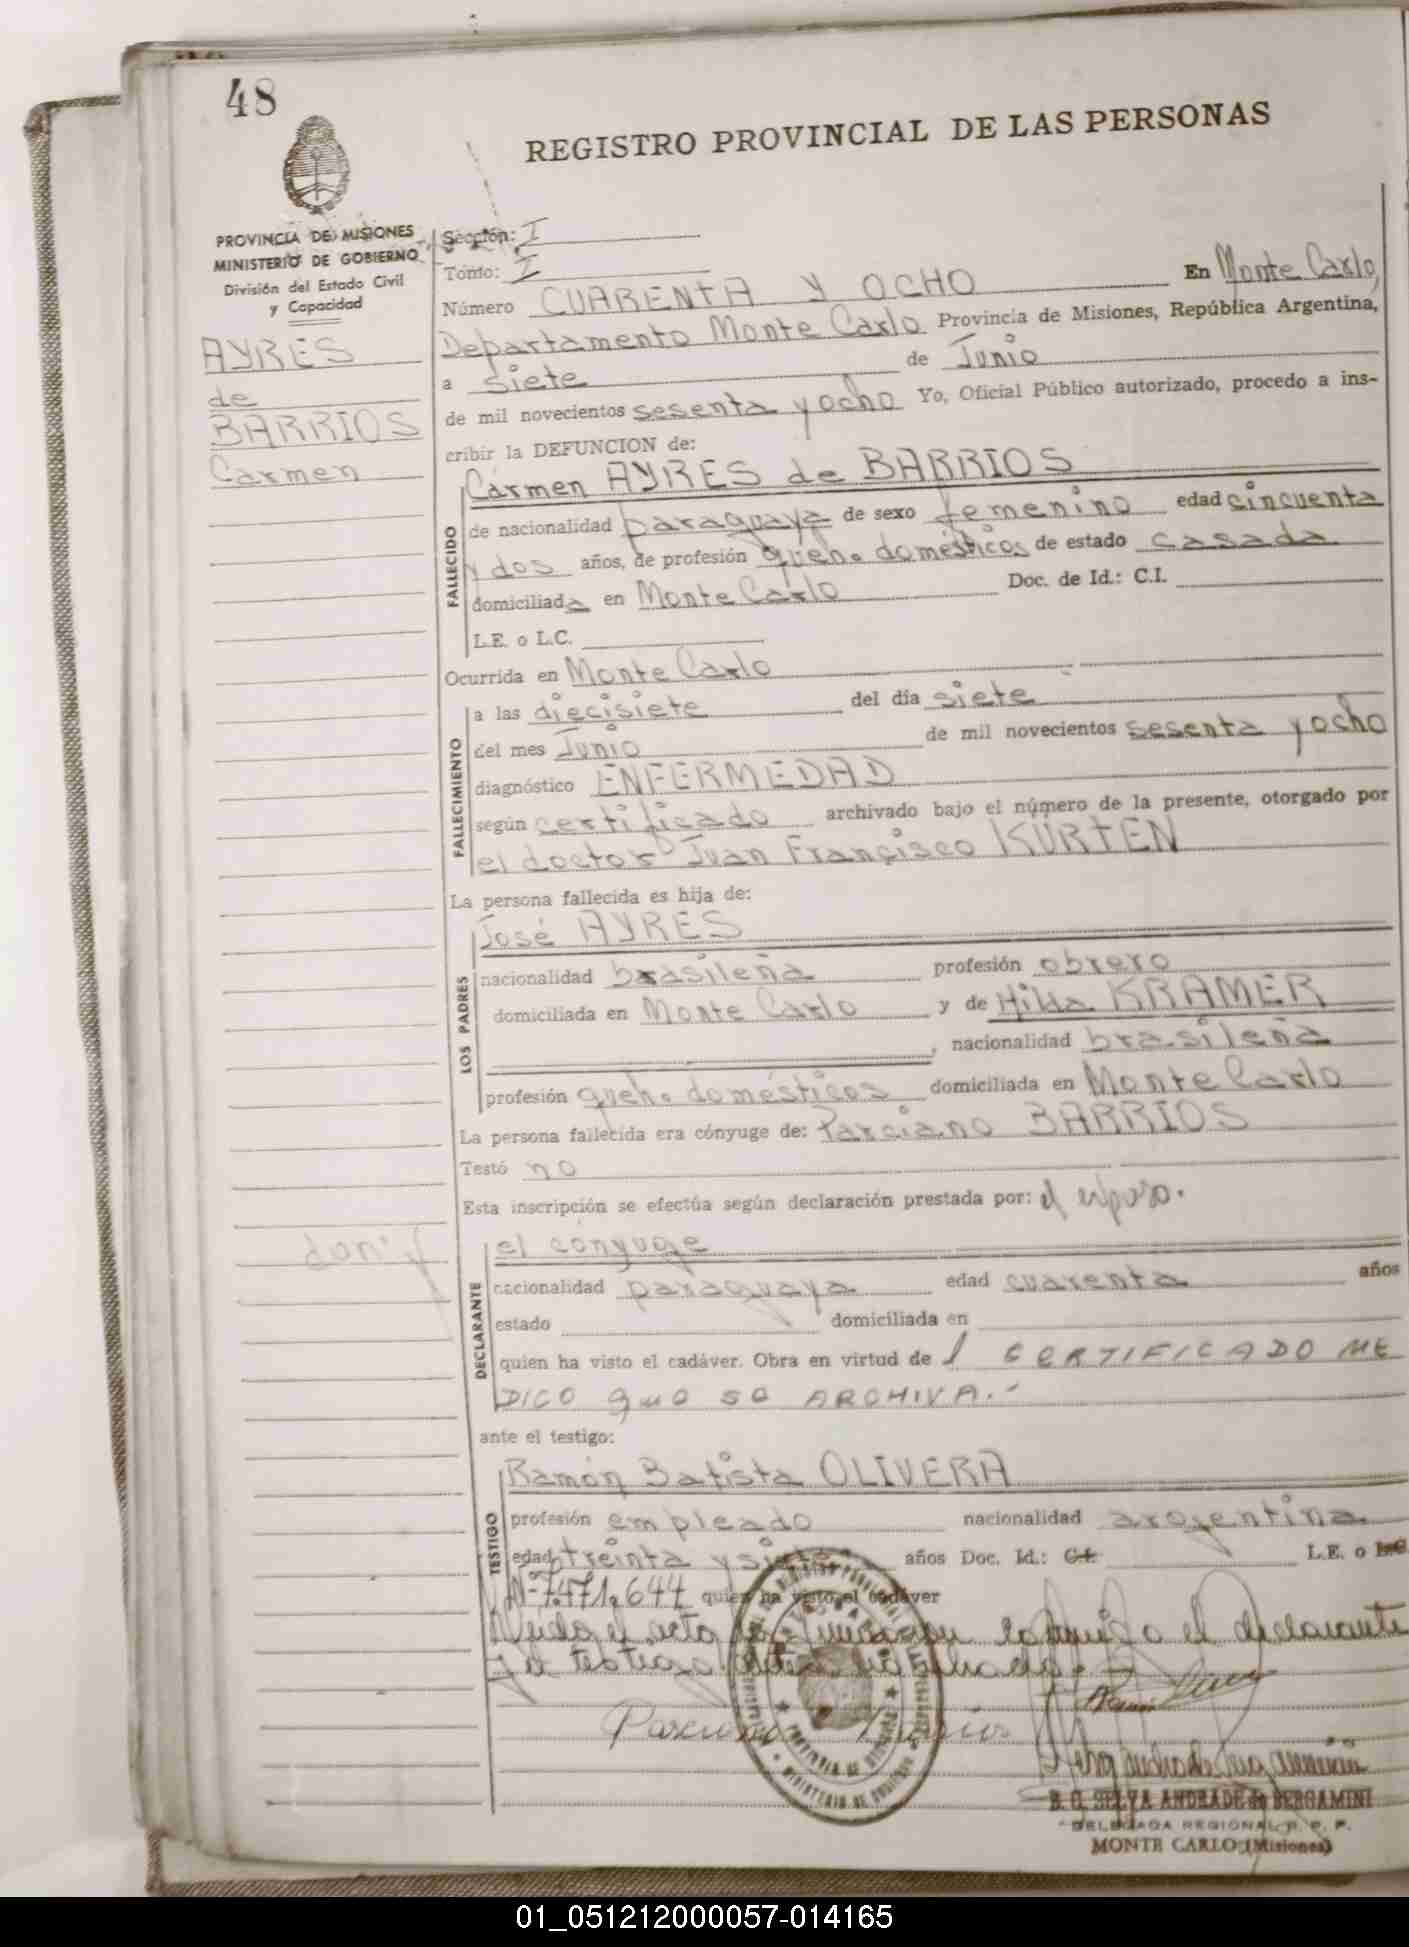 48
REGISTRO PROVINCIAL DE LAS PERSONAS
PROVINCIA DE MISIONES
MINISTERIO DE GOBIERNO
División del Estado Civil
y Capacidad
AYRES
de
BARRIOS
Carmen
Sección: I
Tomo: I
Número CUARENTA Y OCHO En Monte Carlo,
Departamento Monte Carlo Provincia de Misiones, República Argentina,
a siete de Junio
de mil novecientos sesenta y ocho Yo, Oficial Público autorizado, procedo a ins-
cribir la DEFUNCION de:
Carmen AYRES de BARRIOS
FALLECIDO
de nacionalidad paraguaya de sexo femenino edad cincuenta
y dos años, de profesión queh. domésticos de estado casada
domiciliada en Monte Carlo Doc. de Id.: C.I.
L.E. o L.C.
Ocurrida en Monte Carlo
FALLECIMIENTO
a las diecisiete del día siete
del mes Junio de mil novecientos sesenta y ocho
diagnóstico ENFERMEDAD
según certificado archivado bajo el número de la presente, otorgado por
el doctor Juan Francisco KURTEN
La persona fallecida es hija de:
José AYRES
LOS PADRES
nacionalidad brasileña profesión obrero
domiciliada en Monte Carlo y de Hilda KRAMER
, nacionalidad brasileña
profesión queh. domésticos domiciliada en Monte Carlo
La persona fallecida era cónyuge de: Parciano BARRIOS
Testó no
Esta inscripción se efectúa según declaración prestada por: el esposo.
el conyuge
DECLARANTE
nacionalidad paraguaya edad cuarenta años
estado domiciliada en
quien ha visto el cadáver. Obra en virtud de l CERTIFICADO ME
DICO que se ARCHIVA.-
ante el testigo:
Ramón Batista OLIVERA
TESTIGO
profesión empleado nacionalidad argentina
edad treinta y siete años Doc. Id.: C.I. L.E. o L.C.
Nº 7.471.644 quien ha visto el cadáver
Leida el acta conmigo el declarante
y el testigo
Barrios
B. G. SELVA ANDRADE de BERGAMINI
DELEGADA REGIONAL R. P. P.
MONTE CARLO (Misiones)
PROVINCIA DE MISIONES
MINISTERIO DE GOBIERNO
01_051212000057-014165